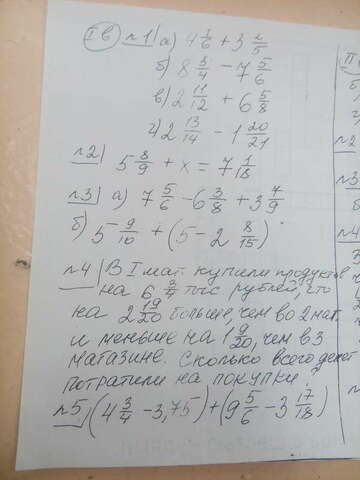 I в №1 а) 4 1/6 + 3 2/5
б) 8 3/4 - 7 5/6
в) 2 11/12 + 6 5/8
г) 2 13/14 - 1 20/21
№2) 5 8/9 + x = 7 1/18
№3) а) 7 5/6 - 6 3/8 + 3 7/9
б) 5 9/10 + (5 - 2 8/15)
№4 В I маг. купили продуктов
на 6 3/4 тыс рублей, что
на 2 19/20 больше, чем во 2 маг.
и меньше на 1 9/20, чем в 3
магазине. Сколько всего денег
потратили на покупки?
№5) (4 3/4 - 3,75) + (9 5/6 - 3 17/18)